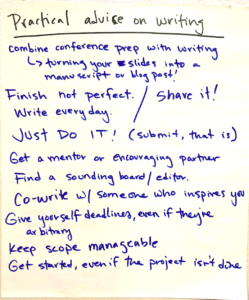 Practical advise on writing
Combine conference prep with writing
↳ turning your slides into a
manuscript or blog post!
Finish not perfect. / Share it!
Write everyday.
Just Do IT! (submit, that is)
Get a mentor or encouraging partner
Find a sounding board/editor.
Co-write w/ someone who inspires you
Give yourself deadlines, even if they're
arbitrary
Keep scope manageable
Get started, even if the project isn't done